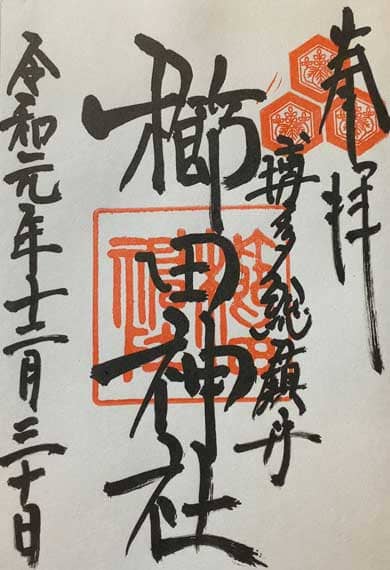 奉拝
博多総鎮守
櫛田神社
令和元年十二月三十日